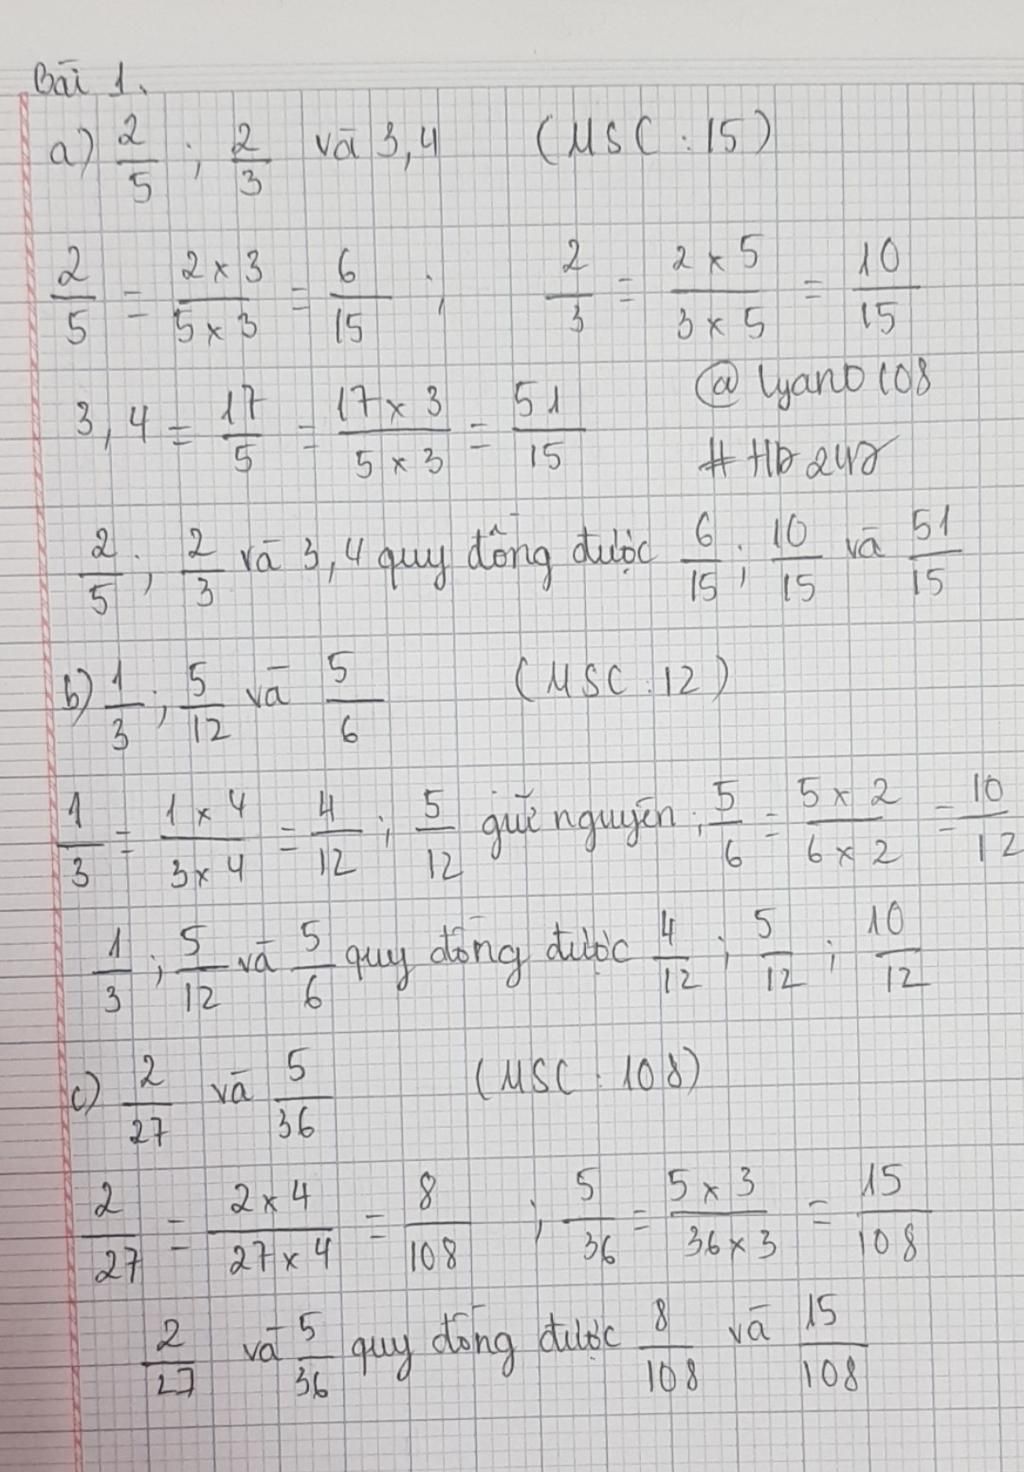 Bài 1.
a) 2/5 ; 2/3 và 3,4 (MSC : 15)
2/5 = 2 × 3/5 × 3 = 6/15 ; 2/3 = 2 × 5/3 × 5 = 10/15
3,4 = 17/5 = 17 × 3/5 × 3 = 51/15
@ lyano108
# HD247
2/5 ; 2/3 và 3,4 quy đồng được 6/15 ; 10/15 và 51/15
b) 1/3 ; 5/12 và 5/6 (MSC : 12)
1/3 = 1 × 4/3 × 4 = 4/12 ; 5/12 giữ nguyên ; 5/6 = 5 × 2/6 × 2 = 10/12
1/3 ; 5/12 và 5/6 quy đồng được 4/12 ; 5/12 ; 10/12
c) 2/27 và 5/36 (MSC : 108)
2/27 = 2 × 4/27 × 4 = 8/108 ; 5/36 = 5 × 3/36 × 3 = 15/108
2/27 và 5/36 quy đồng được 8/108 và 15/108